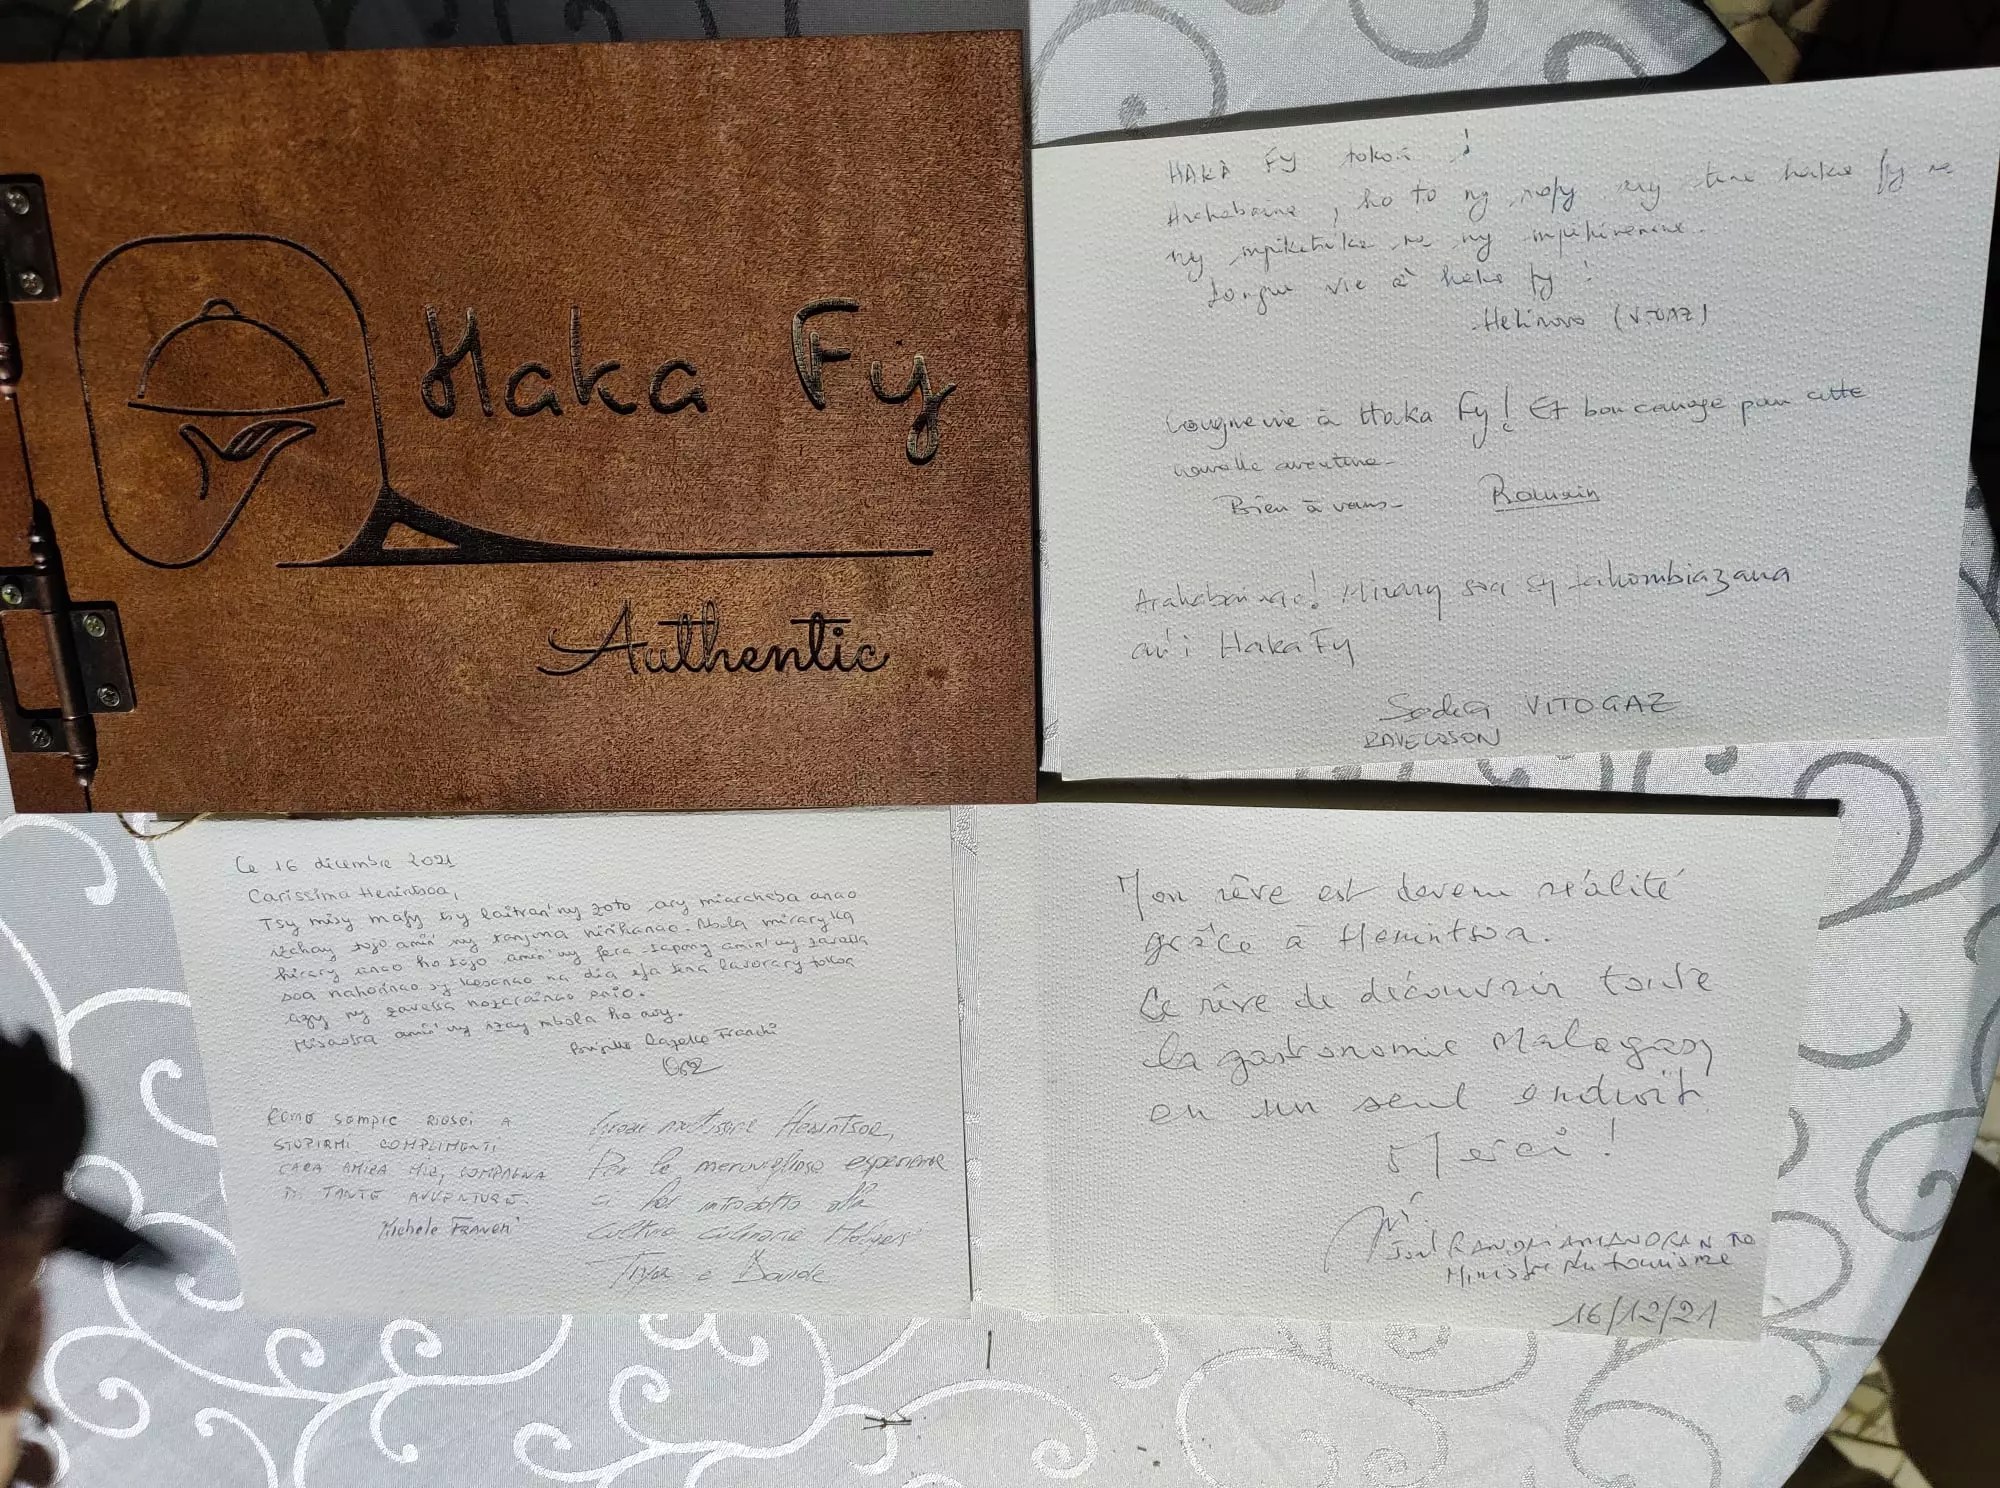 Haka Fy
Authentic
HAKA Fy tokoa !
Arahabaina, ho to ny nofy ary tena haka fy ny
ny mpikatroka sy ny mpihinana.
Longue vie à haka fy !
(VITOGAZ)
Longue vie à Haka Fy ! Et bon courage pour cette
nouvelle aventure.
Bien à vous. Romain
Arahabaina e! Mirary soa sy tahombiazana
an'i Haka Fy
VITOGAZ
Ce 16 dicembre 2021
Carissima Henintsoa,
Tsy misy mafy tsy laitran'ny zoto ary miarahaba anao
izahay tojo amin'ny tanjona nirihanao. Mbola miraryka
hirary anao ho tojo amin'ny fara-tapony amin'ny zavatra
soa nahorinao sy kasanao na dia efa tena lavorary tokoa
azy ny zavatra nozarainao anio.
Misaotra amin'ny izay mbola ho avy.
Franchi
COME SEMPRE RIESCI A
STUPIRMI COMPLIMENTI
CARA AMICA MIA, COMPAGNA
DI TANTE AVVENTURE.
Michele
Henintsoa,
Per la meravigliosa esperienza
ci hai introdotto alla
cultura culinaria
e Davide
Mon rêve est devenu réalité
grâce à Henintsoa.
Ce rêve de découvrir toute
la gastronomie Malagasy
en un seul endroit.
Merci !
Joël RANDRIAMANDRANTO
Ministre du tourisme
16/12/21